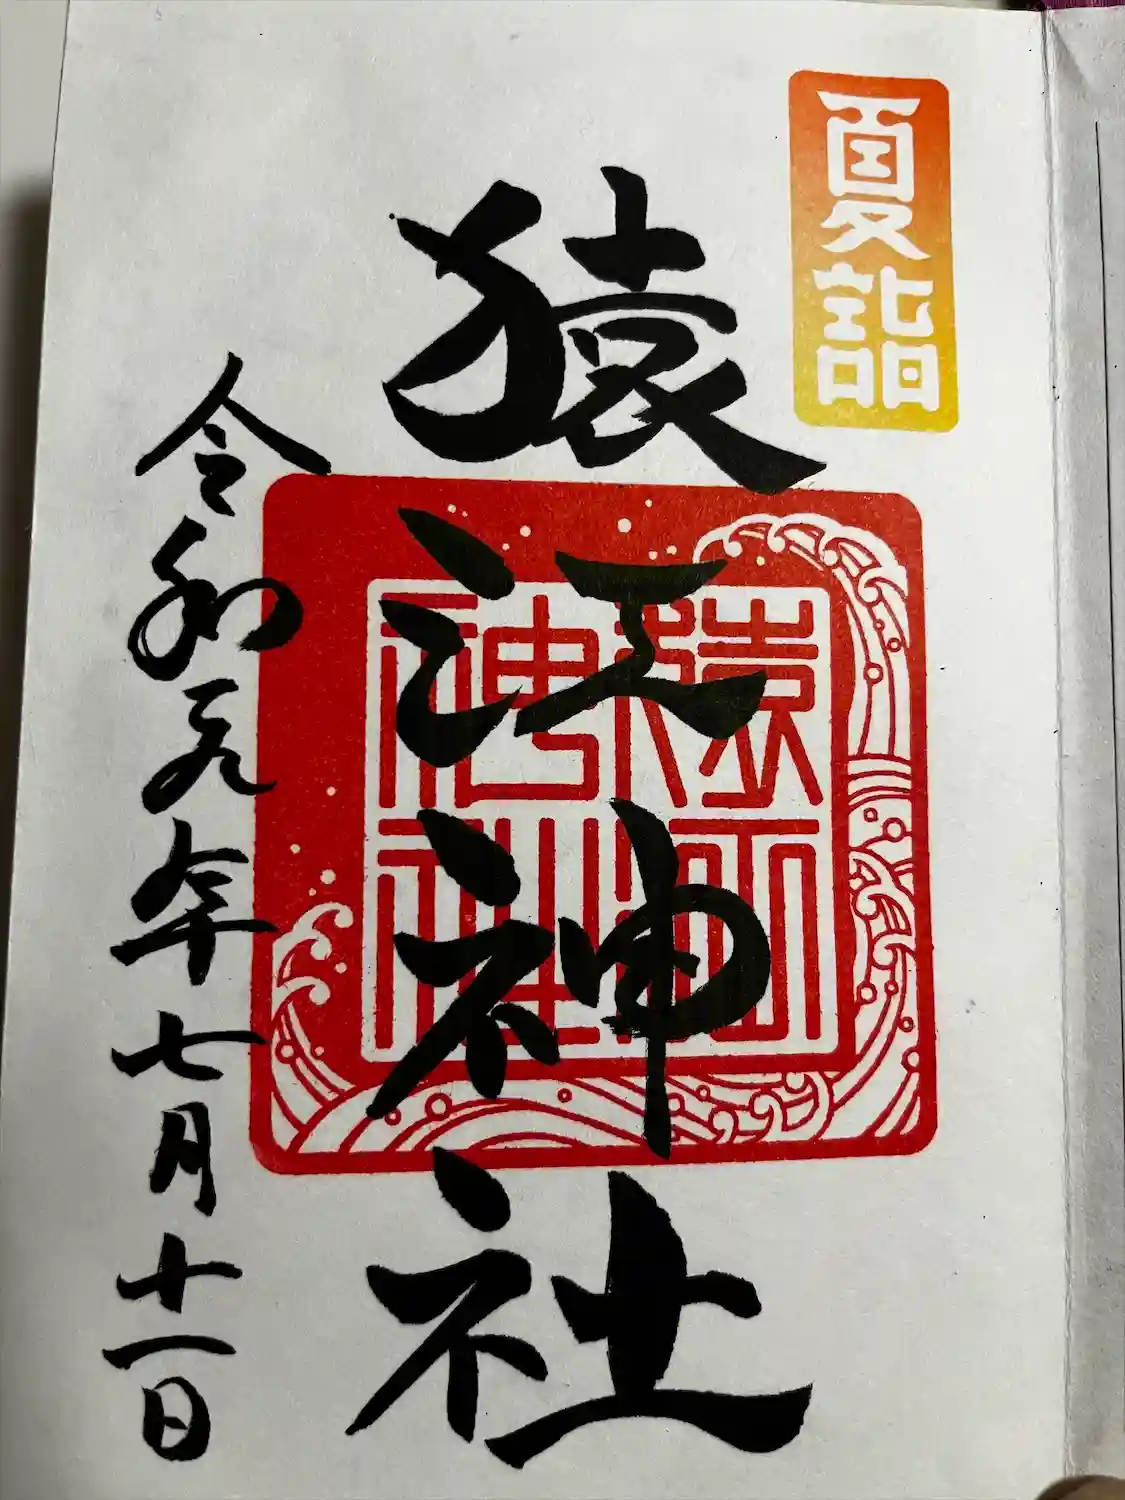 夏詣
猿江神社
猿江
神社
令和元年七月十一日